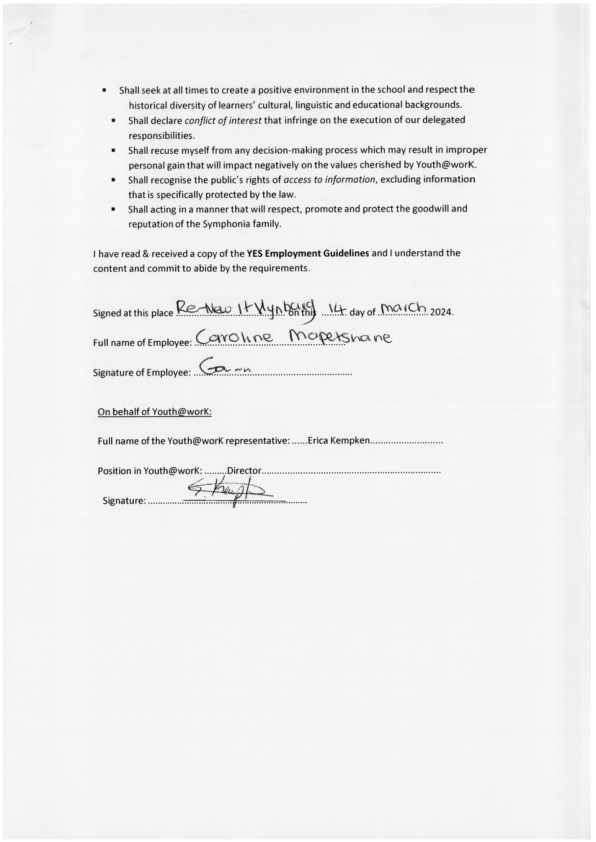 ▪ Shall seek at all times to create a positive environment in the school and respect the
historical diversity of learners' cultural, linguistic and educational backgrounds.
▪ Shall declare conflict of interest that infringe on the execution of our delegated
responsibilities.
▪ Shall recuse myself from any decision-making process which may result in improper
personal gain that will impact negatively on the values cherished by Youth@worK.
▪ Shall recognise the public's rights of access to information, excluding information
that is specifically protected by the law.
▪ Shall acting in a manner that will respect, promote and protect the goodwill and
reputation of the Symphonia family.
I have read & received a copy of the YES Employment Guidelines and I understand the
content and commit to abide by the requirements.
Signed at this place Re-New It Wynberg on this 14 day of March 2024.
Full name of Employee: Caroline Mapetshane
Signature of Employee:
On behalf of Youth@worK:
Full name of the Youth@worK representative: ......Erica Kempken...........................
Position in Youth@worK: ........Director..............................................................
Signature: